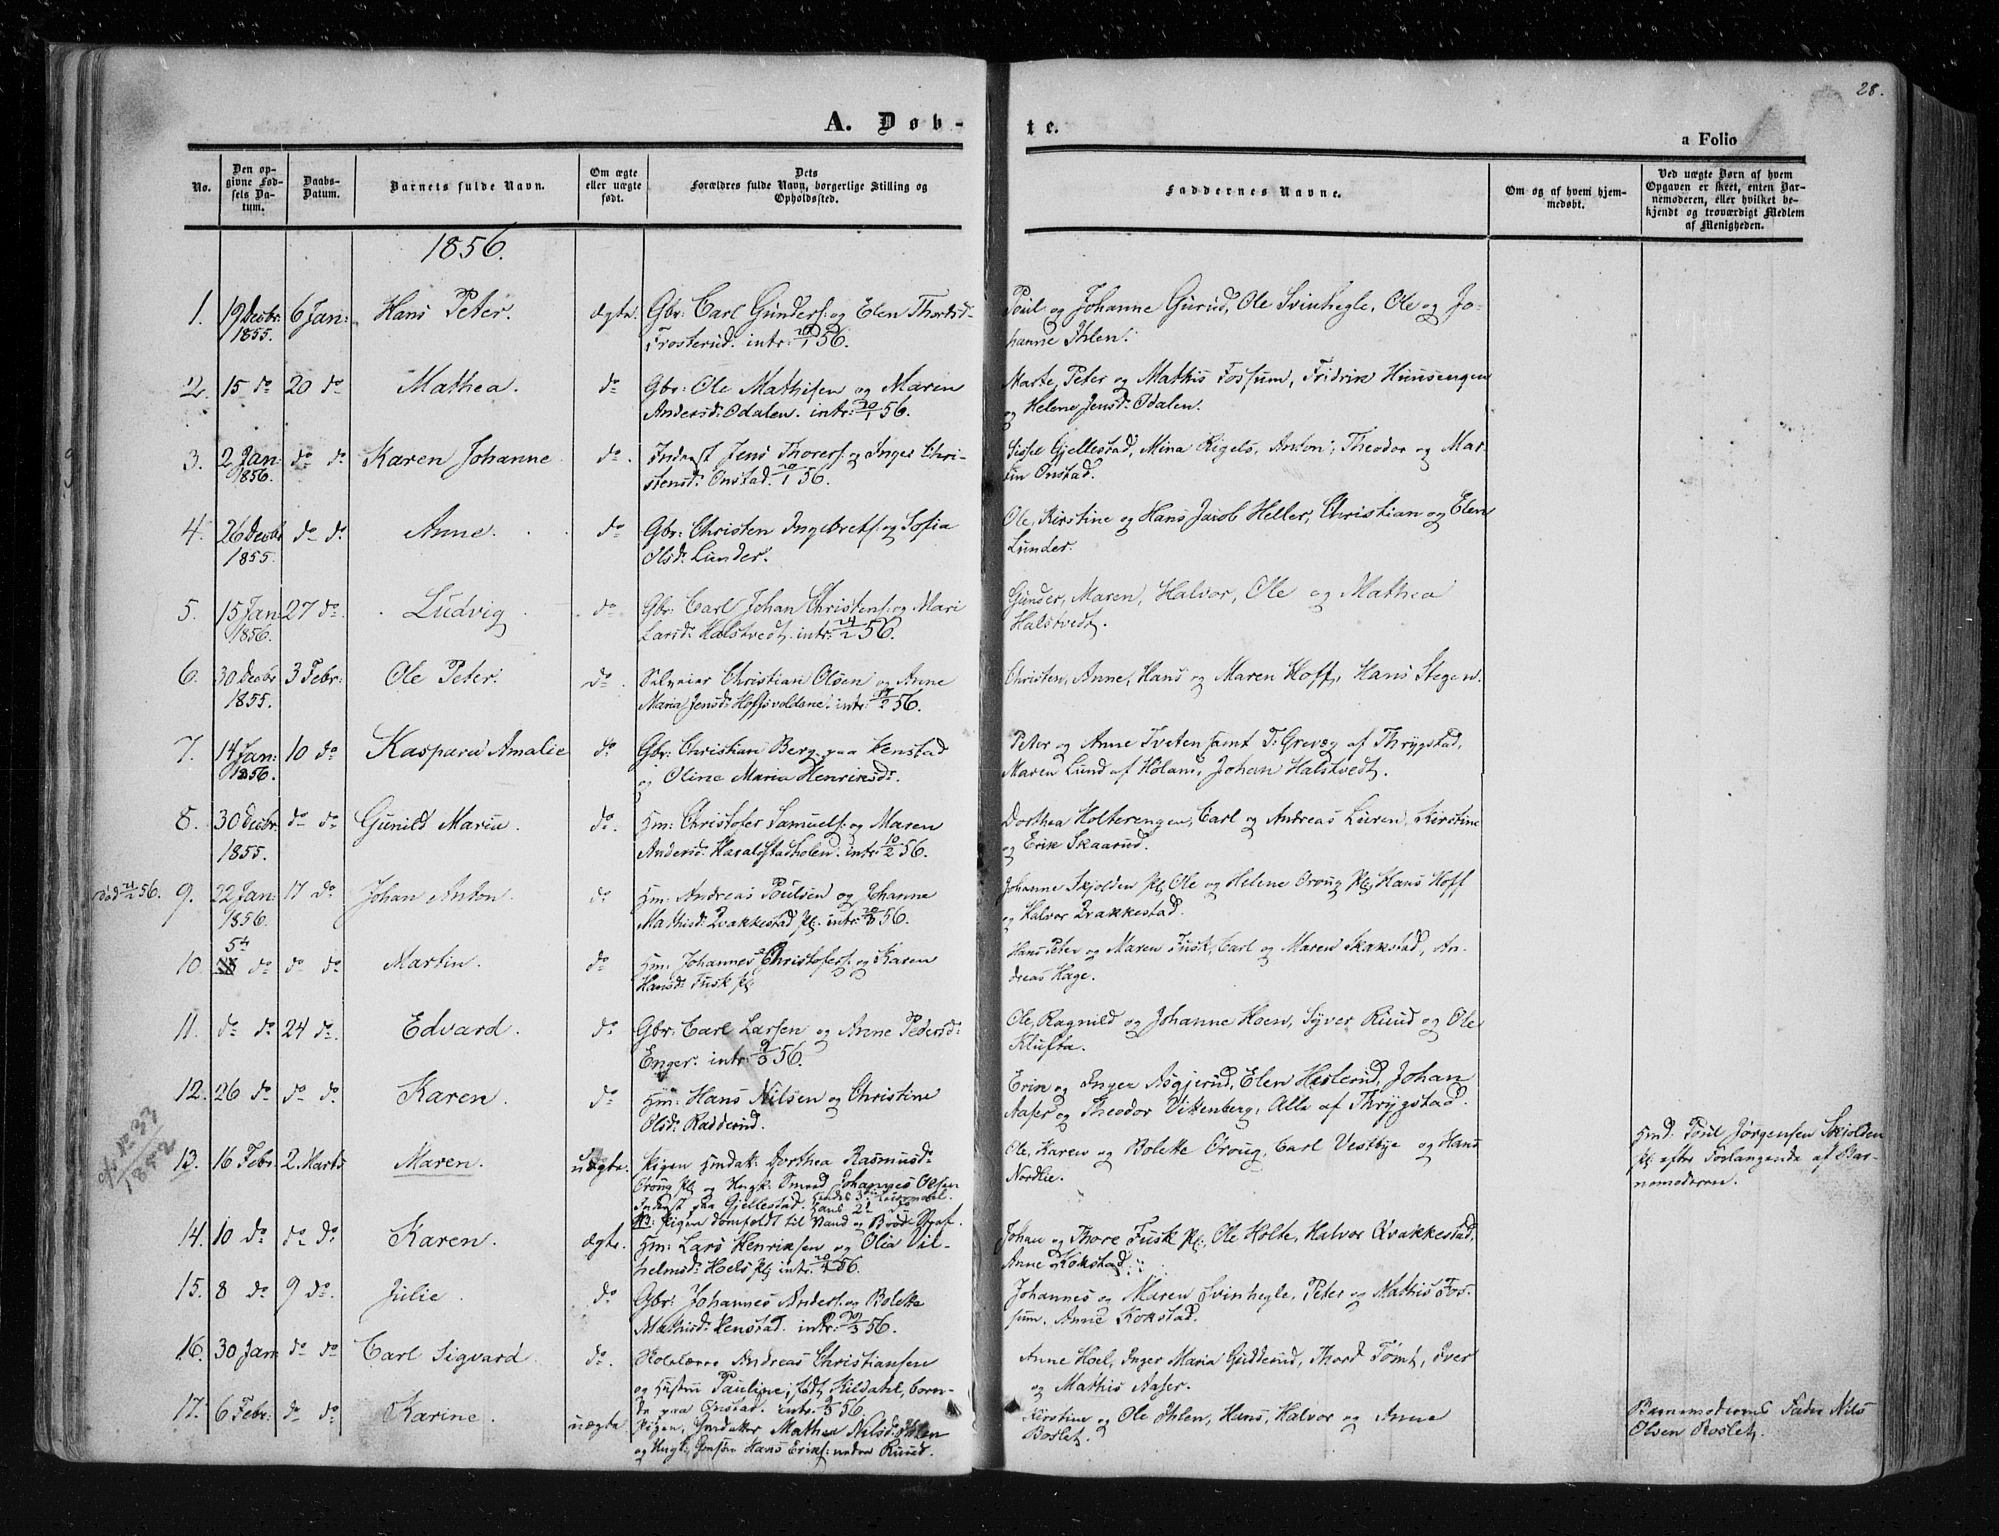 28.
A. Døb-
te.
a Folio
No.
Den op-
givne Fød-
sels Da-
tum.
Daabs-
Datum.
Barnets fulde Navn.
Om ægte
eller uægte
født.
Dets
Forældres fulde Navn, borgerlige Stilling og
Opholdssted.
Faddernes Navne.
Om og af hvem hjem-
medøbt.
Ved uægte Børn af hvem
Opgaven er skeet, enten Bar-
nemoderen, eller hvilket be-
kjendt og troværdigt Medlem
af Menigheden.
1856.
1. 19 Decbr. 6 Jan: Hans Peter. ægte. Gbr: Carl Gunders: og Elen Thordsd: Poul og Johanne Gurud, Ole Svinhegle, Ole og Jo-
1855. Frosterud. intr: 20/1 56. hanne Ihlen.
2. 15 do 20 do Mathea. do Gbr: Ole Mathisen og Maren Marte, Peter og Mathis Fossum, Fridrik Huusengen
Andersd: Odalen. intr: 20/1 56. og Helene Jensd: Odalen.
3. 2 Jan: do do Karen Johanne do. Inderst Jens Thorers: og Inger Chri- Gjellestad, Mina Rigels, Anton, Theodor og Mar-
1856. stensd: Onstad. 20/1 56. Onstad.
4. 26 Decbr do do Anne. do Gbr: Christen Ingebrets: og Sofia Ole, Kirstine og Hans Jacob Heller, Christian og Elen
1855. Olsd: Lunder. Lunder.
5. 15 Jan 27 do. Ludvig do Gbr: Carl Johan Christens: og Mari Gunder, Maren, Halvor, Ole og Mathea
1856. Larsd: Halstvedt. intr: 24/2 56. Halstvedt.
6. 30 Decbr 3 Febr: Ole Peter. do. Selveier Christian Olsen og Anne Christen, Anne, Hans og Maren Hoff, Hans Stegen.
1855. Maria Jensd: Hoffsvoldene. intr: 56.
7. 14 Jan: 10 do Kaspara Amalie do Gbr: Christian Berg paa Henstad Peter og Anne Tveten samt T: Greveg af Thrygstad,
1856. og Oline Maria Henriksd: Maren Lund af Høland, Johan Halstvedt.
8. 30 Decbr. do do Gunild Maria. do. Hm: Christofer Samuels: og Maren Dorthea Holterengen, Carl og Andreas Luren, Kirstine
1855. Andersd: Haralstadholen. intr: 10/2 56. og Erik Skaarud.
Død 21/2 56. 9. 22 Jan 17 do Johan Anton. do Hm: Andreas Poulsen og Johanne Johanne Skjolden pl, Ole og Helene Oroug pl, Hans Hoff
1856. Mathisd: Qvakkestad pl. intr: 20/3 56. og Halvor Qvakkestad.
5te
10. do do do Martin. do Hm: Johannes Christofers: og Karen Hans Peter og Maren Fusk, Carl og Maren Skakstad, An-
Hansd: Fusk pl dreas Hage.
11. do do 24 do. Edvard. do Gbr: Carl Larsen og Anne Pedersd: Ole, Ragnild og Johanne Hoen, Syver Ruud og Ole
Enger. intr: 56. Klufta.
12. 26 do do do Karen. do Hm: Hans Nilsen og Christine Erik og Inger Asgjerud, Elen Heslerud, Johan
Olsd: Radderud. Aaser og Theodor Vittenberg, Alle af Thrygstad.
cfr. No 33
1842
13. 16 Febr. 2. Marts Maren. uægte. Pigen Dorthea Rasmusd: Ole, Karen og Bolette Oroug, Carl Vestbye og Hans Hmd: Poul Jørgensen Skjolden
Oroug pl og Ungk: Smed Johannes Olsen Nordlie. pl efter Forlangende af Bar-
Inderst paa Gjellestad. Hendes 3die Leiermaal. Hans 2de do nemoderen.
NB: Pigen domfældt til Vand og Brød Straf.
14. 10 do do do Karen. ægte. Hm: Lars Henriksen og Olia Vil- Johan og Thore Fusk pl, Ole Holte, Halvor Qvakkestad,
helmsd: Hoels pl intr: 56. Anne Kokstad.
15. 8 do 9 do. Julie. do Gbr: Johannes Anders: og Bolette Johannes og Maren Svinhegle, Peter og Mathis Fos-
Mathisd: Henstad. intr: 56. sum. Anne Kokstad.
16. 30 Jan do do Carl Sigvard do. Andreas Christiansen Anne Hoel, Inger Maria Gudderud, Thord Tomt, Iver
og Hustru Pauline, født Kildahl, boen- og Mathis Aaser.
de paa Onstad. intr: 56.
17. 6 Febr: do do Karine. uægte Pigen, Mathea Nilsd: Ihlen Kirstine og Ole Ihlen, Hans, Halvor og Anne Barnemoderens Fader Nils
og Ungk. Hans Eriks: under Ruud. Boslet. Olsen Roslet.